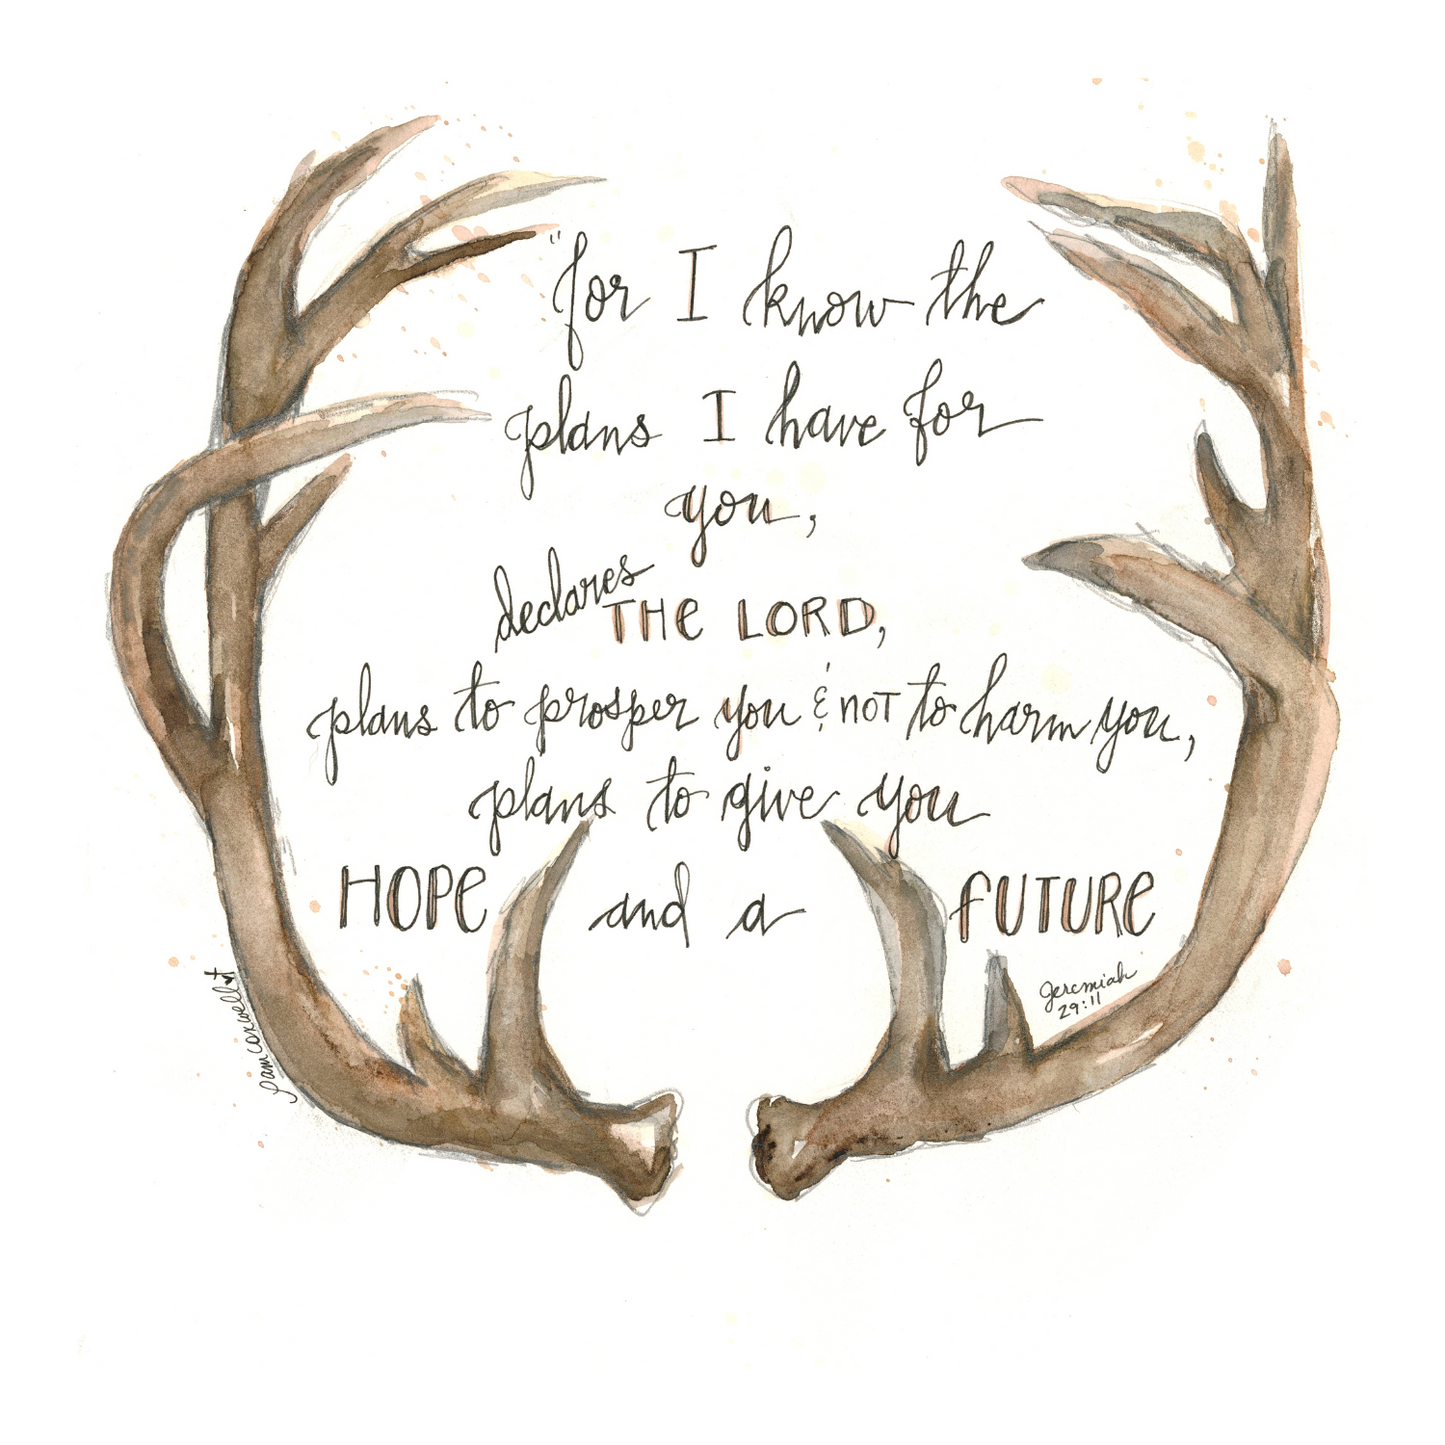 "for I know the
plans I have for
you,
declares THE LORD,
plans to prosper you & NOT to harm you,
plans to give you
HOPE and a FUTURE
Jeremiah
29:11